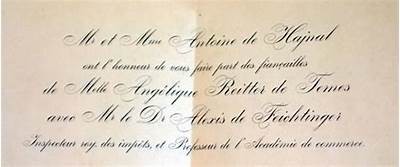 Mr et Mme Antoine de Hajnal
ont l'honneur de vous faire part des fiançailles
de Melle Angélique Reitter de Temos
avec Mr le Dr Alexis de Feichtinger
Inspecteur roy. des impôts, et Professeur de l'Académie de commerce.